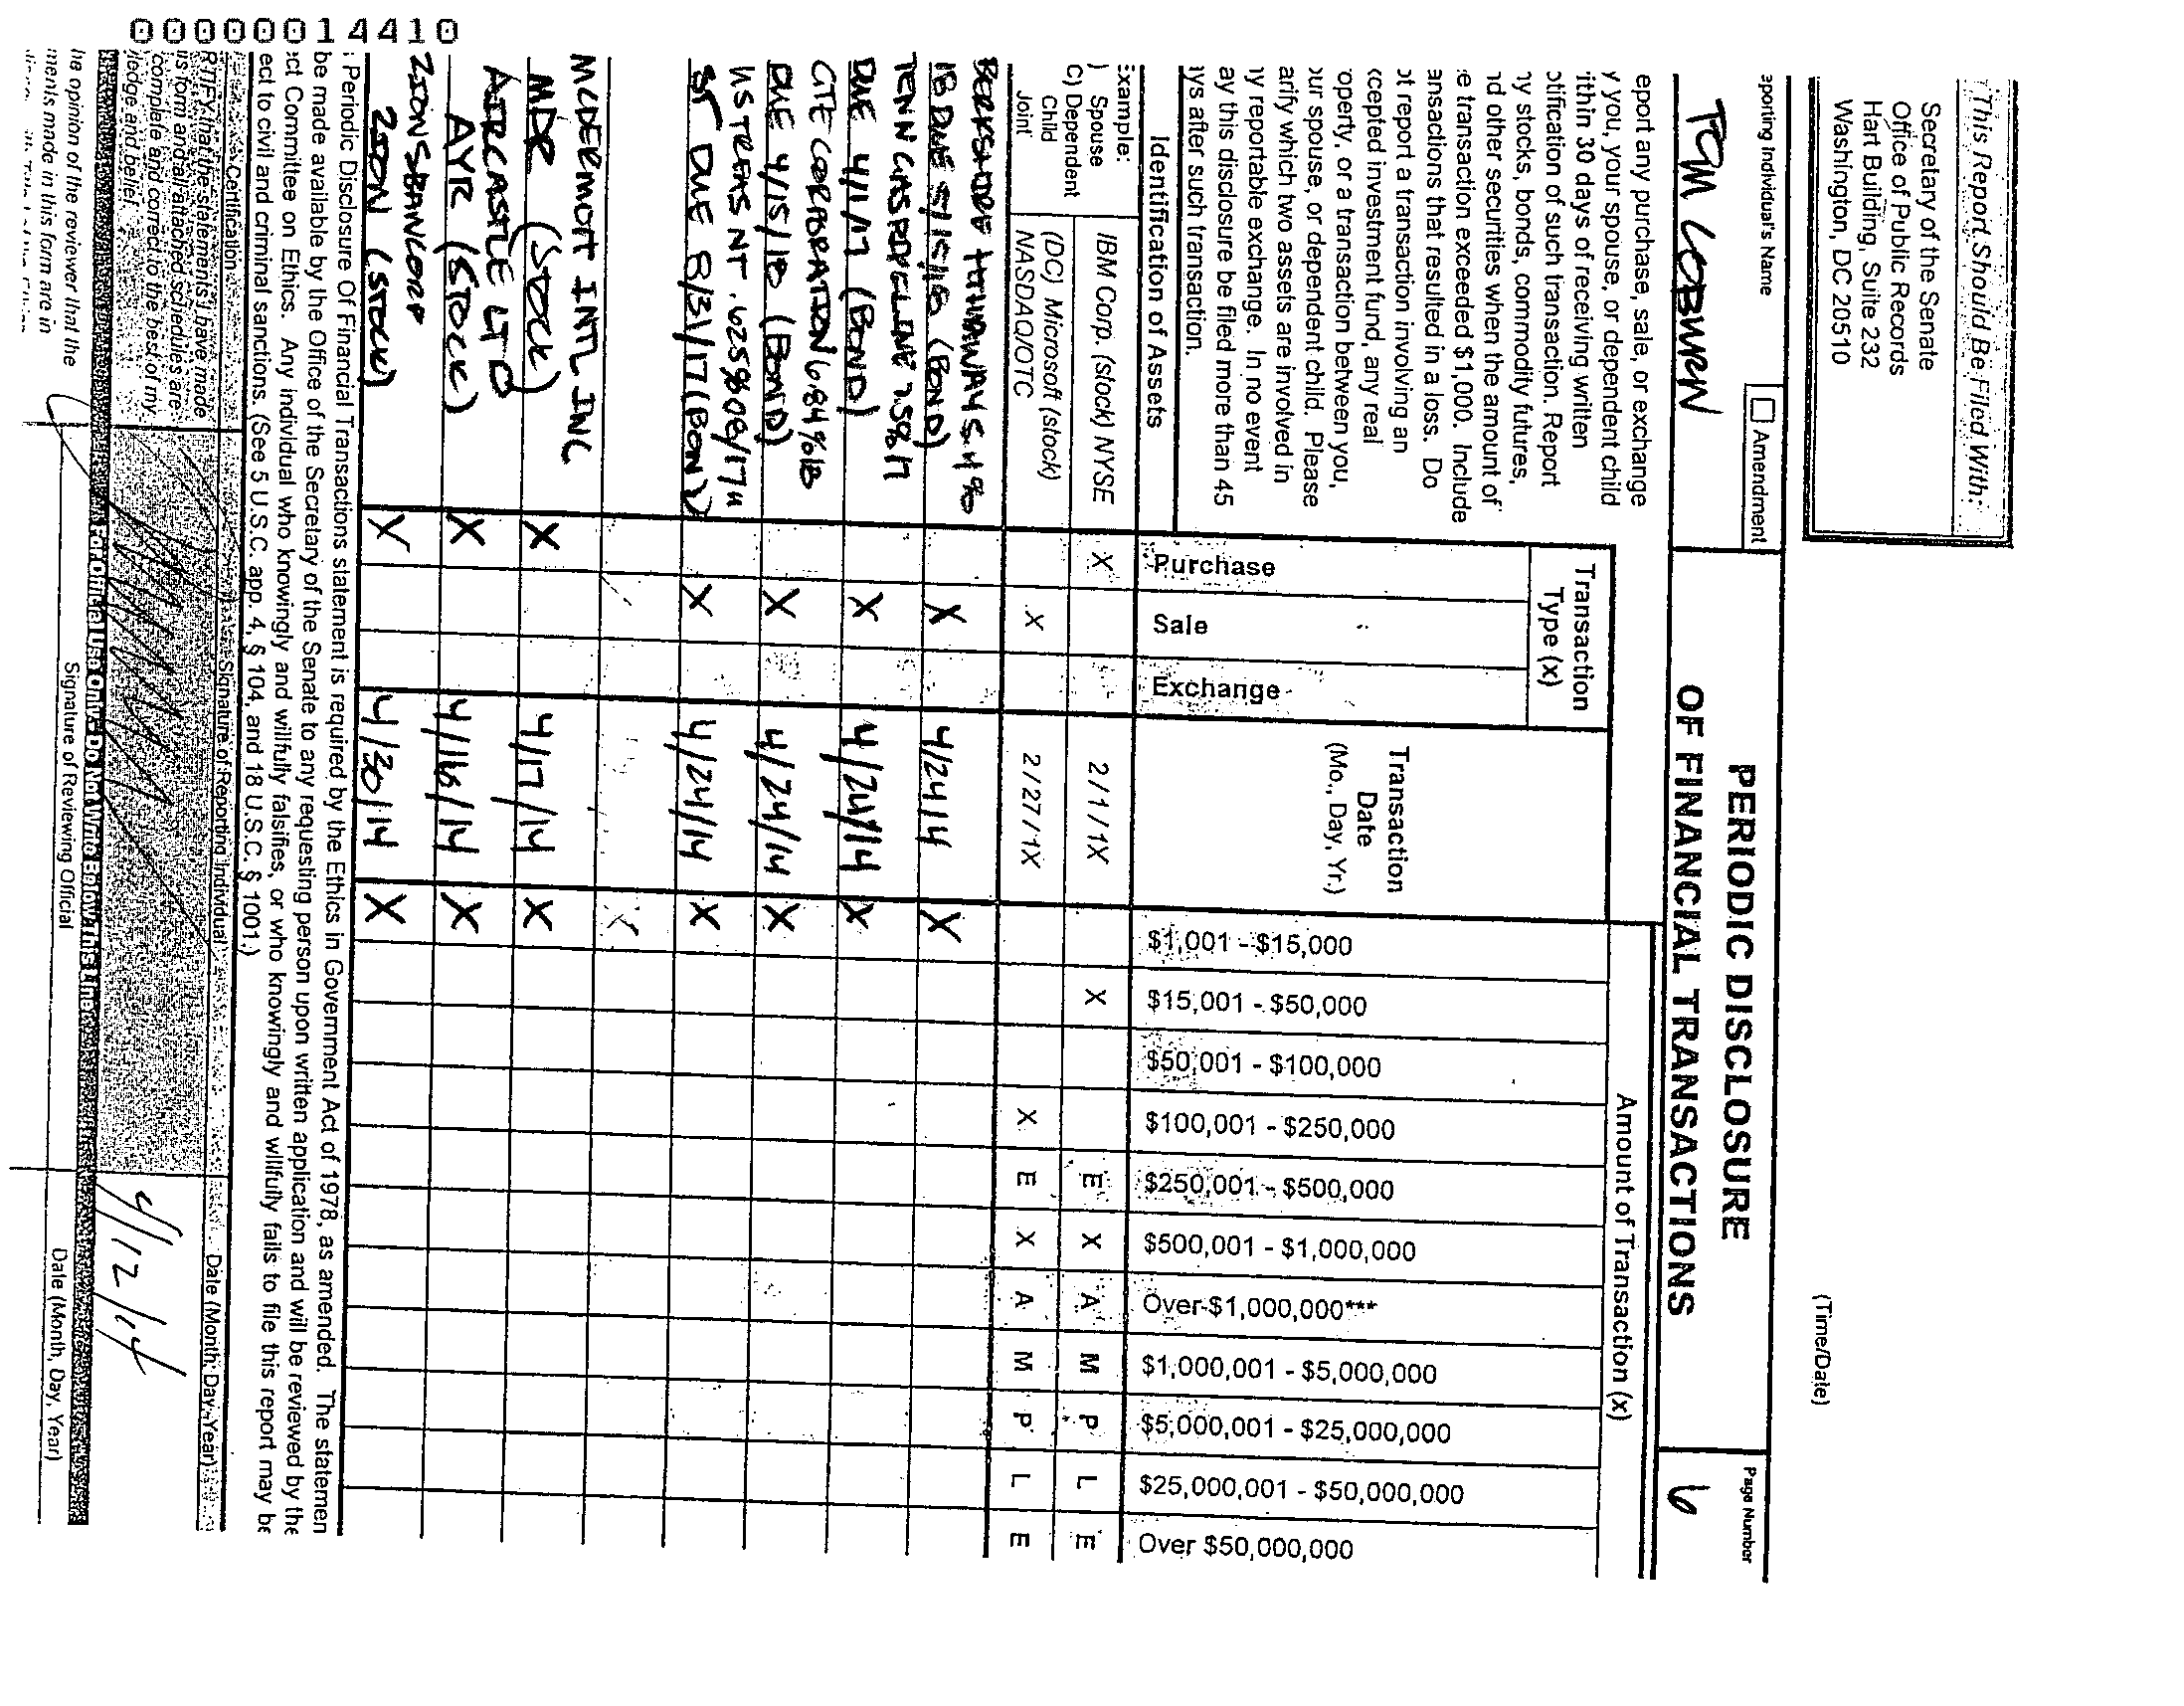 This Report Should Be Filed With:
Secretary of the Senate
Office of Public Records
Hart Building, Suite 232
Washington, DC 20510
(Time/Date)
eporting Individual's Name
Amendment
TOM COBURN
PERIODIC DISCLOSURE
OF FINANCIAL TRANSACTIONS
Page Number
6
eport any purchase, sale, or exchange
y you, your spouse, or dependent child
ithin 30 days of receiving written
otification of such transaction. Report
ny stocks, bonds, commodity futures,
nd other securities when the amount of
e transaction exceeded $1,000. Include
ansactions that resulted in a loss. Do
ot report a transaction involving an
xcepted investment fund, any real
operty, or a transaction between you,
our spouse, or dependent child. Please
arify which two assets are involved in
ny reportable exchange. In no event
ay this disclosure be filed more than 45
ays after such transaction.
Identification of Assets
Transaction
Type (x)
Purchase
Sale
Exchange
Transaction
Date
(Mo., Day, Yr.)
Amount of Transaction (x)
$1,001 - $15,000
$15,001 - $50,000
$50,001 - $100,000
$100,001 - $250,000
$250,001 - $500,000
$500,001 - $1,000,000
Over $1,000,000***
$1,000,001 - $5,000,000
$5,000,001 - $25,000,000
$25,000,001 - $50,000,000
Over $50,000,000
Example:
) Spouse
C) Dependent
Child
Joint
IBM Corp. (stock) NYSE X 2/1/1X X E X A M P L E
(DC) Microsoft (stock)
NASDAQ/OTC X 2/27/1X X E X A M P L E
BERKSHIRE HATHAWAY 5.4%
18 DUE 5/15/18 (BOND) X 4/24 14 X
TENN GAS PIPELINE 7.5% 17
DUE 4/1/17 (BOND) X 4/24/14 X
GTE CORPORATION 6.84% 18
DUE 4/15/18 (BOND) X 4/24/14 X
US TREAS NT .625% 08/17 U
ST DUE 8/31/17 (BOND) X 4/24/14 X
MCDERMOTT INTL INC
MDR (STOCK) X 4/17/14 X
AIRCASTLE LTD
AYR (STOCK) X 4/16/14 X
ZIONS BANCORP
ZION (STOCK) X 4/30/14 X
Periodic Disclosure Of Financial Transactions statement is required by the Ethics in Government Act of 1978, as amended. The statemen
be made available by the Office of the Secretary of the Senate to any requesting person upon written application and will be reviewed by the
ct Committee on Ethics. Any individual who knowingly and willfully falsifies, or who knowingly and willfully fails to file this report may be
ect to civil and criminal sanctions. (See 5 U.S.C. app. 4, § 104, and 18 U.S.C. § 1001.)
Certification
Signature of Reporting Individual
Date (Month, Day, Year)
RTIFY that the statements I have made
is form and all attached schedules are
complete and correct to the best of my
ledge and belief.
For Official Use Only - Do Not Write Below This Line
he opinion of the reviewer that the
ments made in this form are in
Signature of Reviewing Official
Date (Month, Day, Year)
00000014410